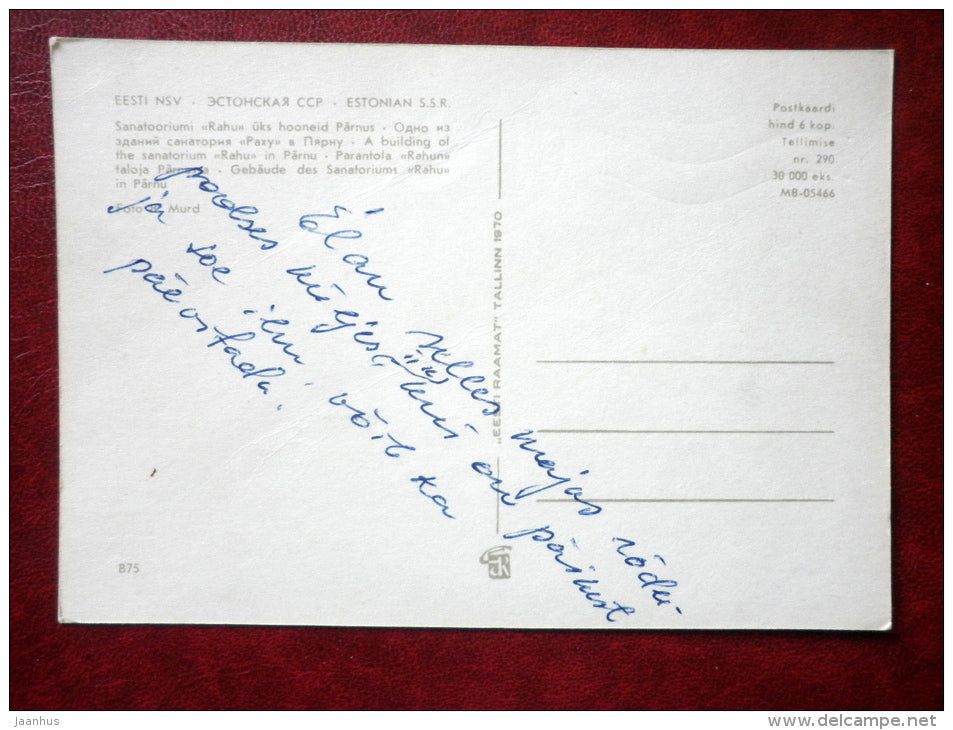 EESTI NSV · ЭСТОНСКАЯ ССР · ESTONIAN S.S.R.
Sanatooriumi «Rahu» üks hooneid Pärnus · Одно из
зданий санатория «Раху» в Пярну · A building of
the sanatorium «Rahu» in Pärnu · Parantola «Rahun»
taloja Pärnussa · Gebäude des Sanatoriums «Rahu»
in Pärnu
Foto Murd
Postkaardi
hind 6 kop.
Tellimise
nr. 290
30 000 eks.
MB-05466
Elan selles majas rõdu-
poolses küljes, kui on päikest
ja soe ilm võib ka
päevitada.
„EESTI RAAMAT" TALLINN 1970
B75
Jaanhus
www.delcampe.net